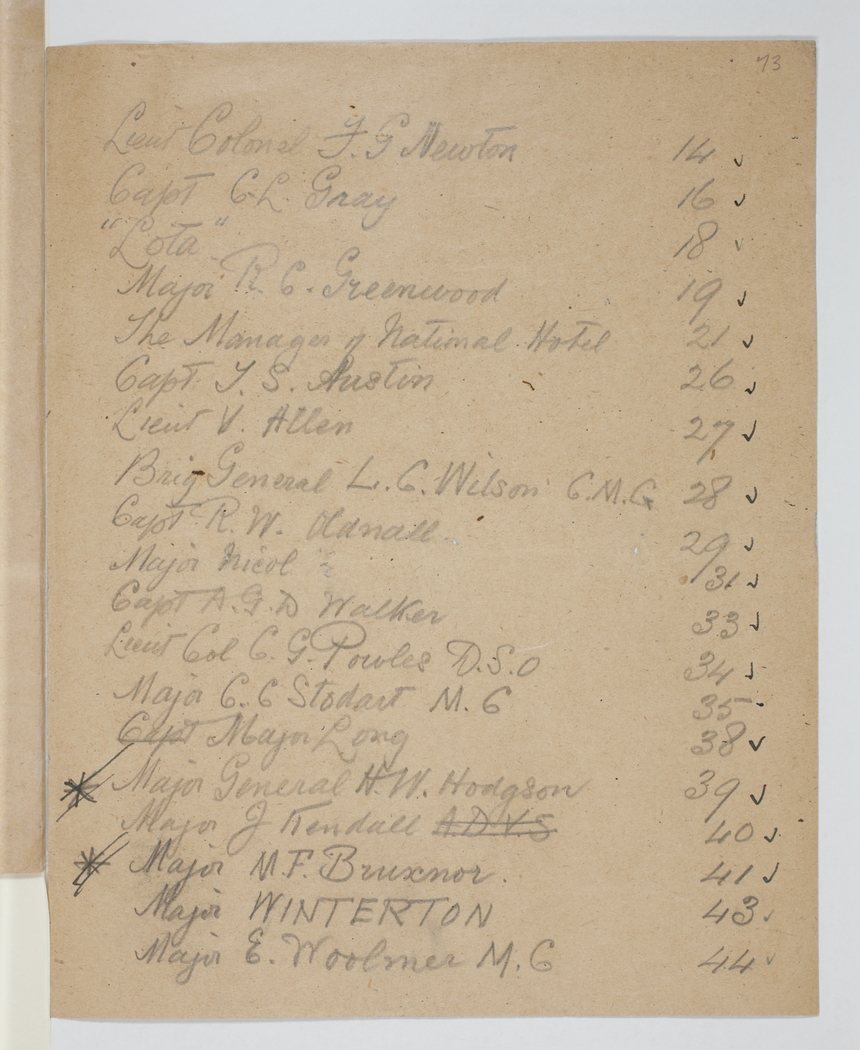 73
Lieut Colonel F. G Newton 14 ✓
Capt C. L. Gray 16 ✓
"Lota" 18 ✓
Major R. C. Greenwood 19 ✓
The Manager of National Hotel 21 ✓
Capt T. S. Austin 26 ✓
Lieut V. Allen 27 ✓
Brig General L. C. Wilson C.M.G 28 ✓
Capt R. W. Oldnall 29 ✓
Major Nicol 31 ✓
Capt A. G. D Walker 33 ✓
Lieut Col C. G. Powles D.S.O 34 ✓
Major C. C Stodart M. C 35
Capt Major Long 38 ✓
Major General H. W. Hodgson 39 ✓
Major J Kendall A.D.V.S 40 ✓
Major M. F. Bruxnor. 41 ✓
Major WINTERTON 43 ✓
Major E. Woolmer M. C 44 ✓